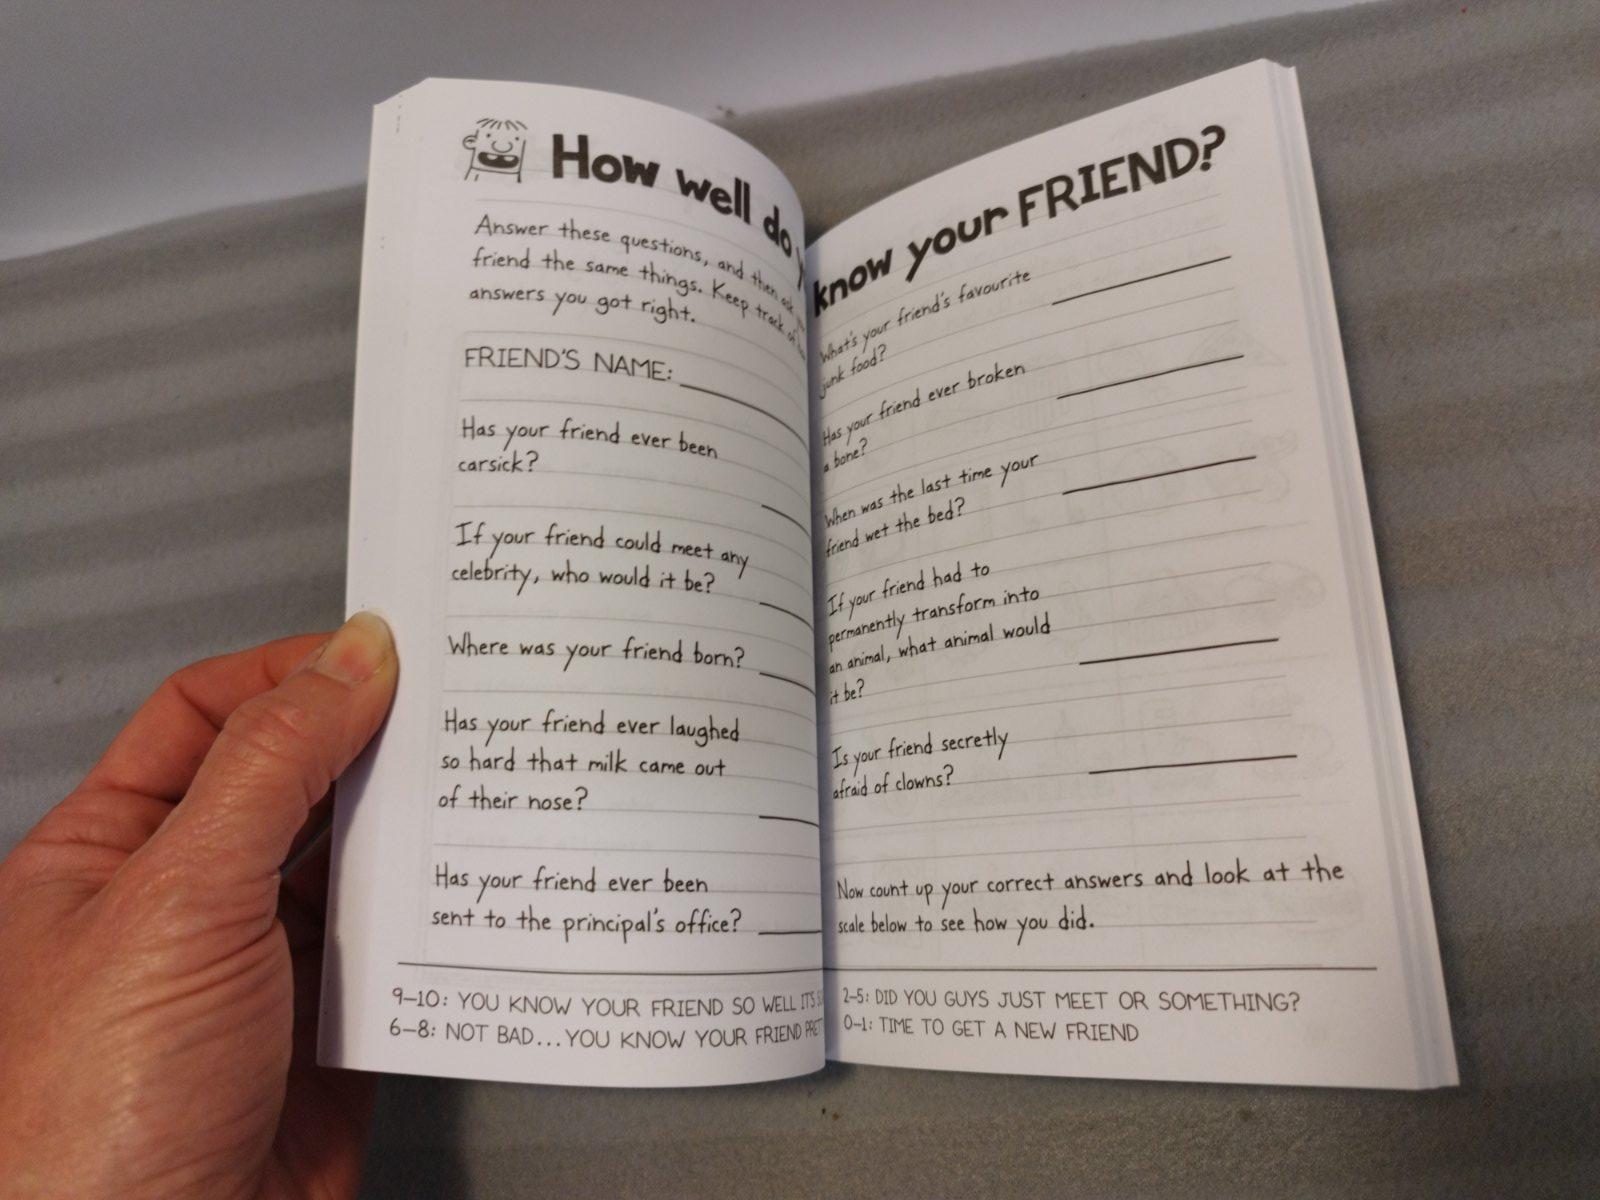 How well do
Answer these questions, and then ask
friend the same things. Keep track of
answers you got right.
FRIEND'S NAME:
Has your friend ever been
carsick?
If your friend could meet any
celebrity, who would it be?
Where was your friend born?
Has your friend ever laughed
so hard that milk came out
of their nose?
Has your friend ever been
sent to the principal's office?
9–10: YOU KNOW YOUR FRIEND SO WELL IT'S
6–8: NOT BAD...YOU KNOW YOUR FRIEND
know your FRIEND?
What's your friend's favourite
junk food?
Has your friend ever broken
a bone?
When was the last time your
friend wet the bed?
If your friend had to
permanently transform into
an animal, what animal would
it be?
Is your friend secretly
afraid of clowns?
Now count up your correct answers and look at the
scale below to see how you did.
2–5: DID YOU GUYS JUST MEET OR SOMETHING?
0–1: TIME TO GET A NEW FRIEND